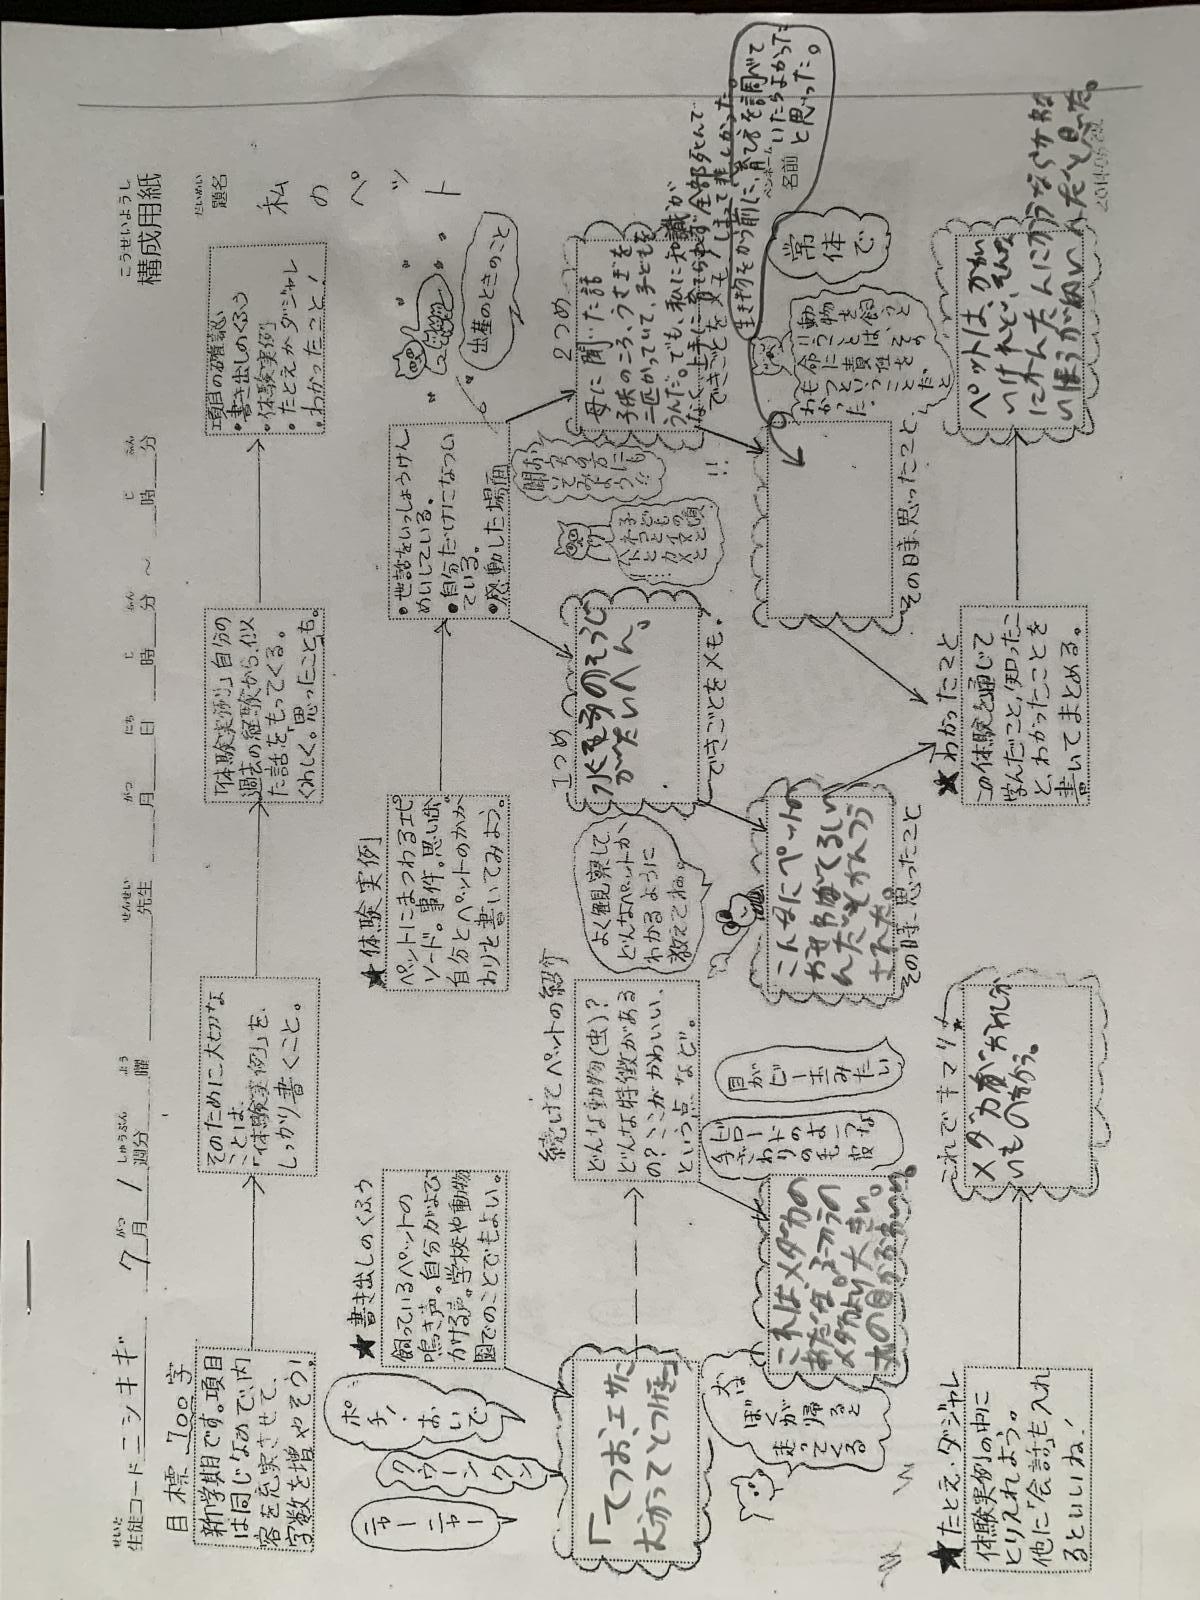 構成用紙
こうせいようし
題名
だいめい
私のペット
生徒コード ニシキギ 7月 1 週分 曜 先生 月 日 時 分 ～ 時 分
目標 700字
新学期です。項目
は同じなめで、内
容を充実させて、
字数を増やそう!
そのために大切な
ことは、
「体験実例」を、
しっかり書くこと。
「体験実例」自分の
過去の経験から、似
た話をもってくる。
くわしく。「思ったこと」も。
項目の確認
・書き出しのくふう
・体験実例
・たとえかダジャレ
・わかったこと!
★書き出しのくふう
飼っているペットの
鳴き声。自分がよび
かける声。学校や動物
園でのことでもよい。
ニャーニャー
クウーンクン
ポチ!おいで
「てつお、エサに
続けてペットの紹介
どんな動物(虫)?
どんな特徴がある
の?、ここがかわいい、
という点、など。
犬は
ぼくが
帰ると
走って
くる。
ビロードの
手ざわりのような
毛皮
目が
ビー玉
みたい
これは、メダカの
メダカより大きい。
よく観察して、
どんなペットか、
わかるように
教えてね。
★体験実例
ペットにまつわるエピ
ソード。事件。思い出。
自分とペットのかか
わりを書いてみよう。
・世話をいっしょうけん
めいしている。
・自分だけになつい
ている。
・感動した場面
出産のときのこと
1つめ
水そうのそうじ
がたいへん、
できごとをメモ。
こんなにペットの
おせわがくるしい
んだ
その時、思ったこと
おうちの方にも
聞いてみよう!!
2つめ
母に聞いた話
子供のころ、うさぎを
二匹かっていて、子どもを
うんだ。でも、私に知識が
なく、上手に育てられず全部死んで
しまって悲しかった。
できごとをメモ!
生き物をかう前に、育て方を調べて
いたらよかった
と思った。
ペンネーム
名前
常体で
動物を飼う
ということは、その
命に責任を
もつということだと
わかった。
その時、思ったこと
★たとえ・ダジャレ
体験実例の中に
とりいれよう。
他に「会話」も入れ
るといいね!
これでキマリ!
★わかったこと
この体験を通じて
学んだこと、知ったこ
と、わかったことを
書いてまとめる。
ペットは、かわ
いいけれど、そんな
にかんたんにかう